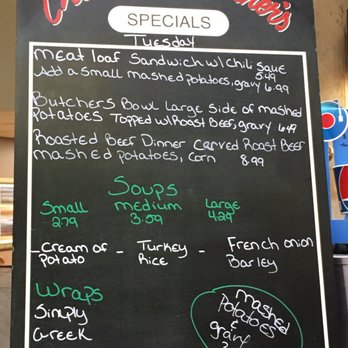 SPECIALS
Tuesday
Meat loaf Sandwich w/ Chili Sauce 5.49
Add a Small mashed potatoes, gravy 6.99
Butchers Bowl Large side of mashed
potatoes Topped w/ Roast Beef, gravy 6.49
Roasted Beef Dinner Carved Roast Beef
mashed potatoes, corn 8.99
Soups
Small medium Large
2.79 3.59 4.29
- Cream of Potato - Turkey Rice - French onion Barley
Wraps
Simply
Greek
mashed
potatoes
&
gravy